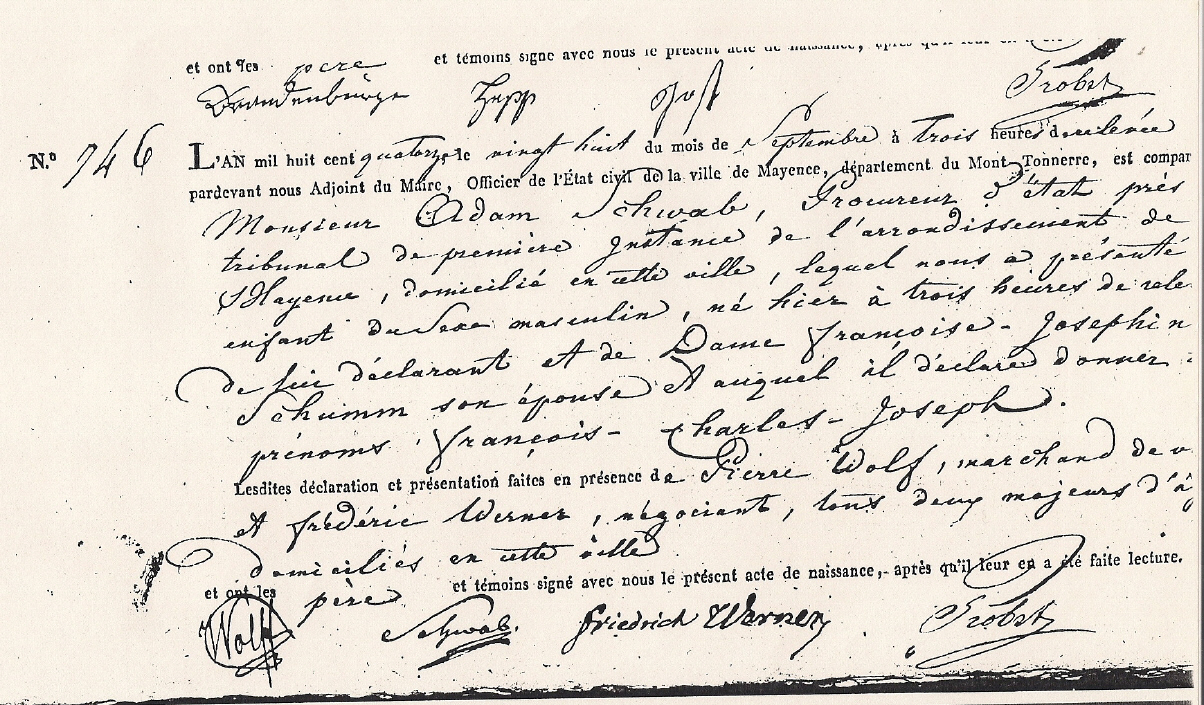 et ont les père et témoins signé avec nous le présent acte de naissance, après qu'il leur en a été
Brandenburger Zepp Jost Probst
N.º 746 L'AN mil huit cent quatorze le vingt huit du mois de Septembre à trois heures de relevée
pardevant nous Adjoint du Maire, Officier de l'État civil de la ville de Mayence, département du Mont-Tonnerre, est compar
Monsieur Adam Schwab, Procureur d'état près
tribunal de première Instance de l'arrondissement de
Mayence, domicilié en cette ville, lequel nous a présenté
enfant du Sexe masculin, né hier à trois heures de rele
de lui déclarant et de Dame Françoise-Josephin
Schumm son épouse et auquel il déclare donner
prénoms François-Charles-Joseph.
Lesdites déclaration et présentation faites en présence de Pierre Wolf, marchand de v
et frédéric Werner, négociant, tous deux majeurs d'â
domiciliés en cette ville
et ont les père et témoins signé avec nous le présent acte de naissance, après qu'il leur en a été faite lecture.
Wolf Schwab. Friedrich Werner Probst